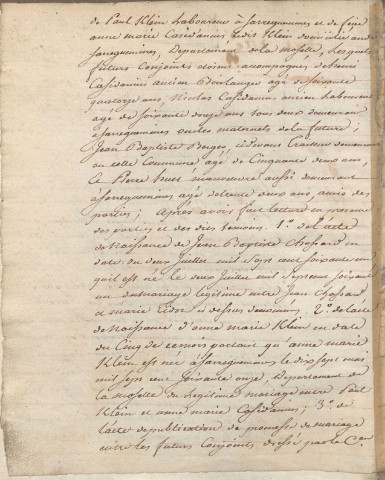 de Paul Klein laboureur à Sarreguemines et de feüe
anne marie Casidanius ledit Klein domicilié audit
Sarreguemines, Departement de la Moselle, Lesquels
futurs Conjoints étoient accompagnés de henri
Casidanius ancien Boulanger agé de soixante
quatorze ans, Nicolas Casidanius ancien laboureur
agé de soixante douze ans tous deux demeurant
à Sarreguemines oncles maternels de la future;
Jean Baptiste Berger, cidevant Traiteur demeurant
en cette Commune agé de Cinquante deux ans,
et Pierre huet manoeuvre aussi demeurant
à Sarreguemines agé de trente deux ans, amis des
parties; Après avoir fait lecture en presence
des parties et des dits temoins. 1.º de l'acte
de Naissance de Jean Baptiste Chossard en
date du deux Juillet mil sept cent soixante un
qu'il est né le deux Juillet mil sept cent soixante
un du mariage légitime entre Jean Chossard
et marie ci dessus denommés. 2.º de l'acte
de Naissance d'anne marie Klein en date
du Cinq de ce mois portant qu'anne marie
Klein est née à Sarreguemines le dix sept mai
mil sept cent soixante onze, Departement de
la Moselle du legitime mariage entre Paul
Klein et anne marie Casidanius; 3.º de
l'acte de publication de promesse de mariage
entre les futurs Conjoints dressé par le C.en